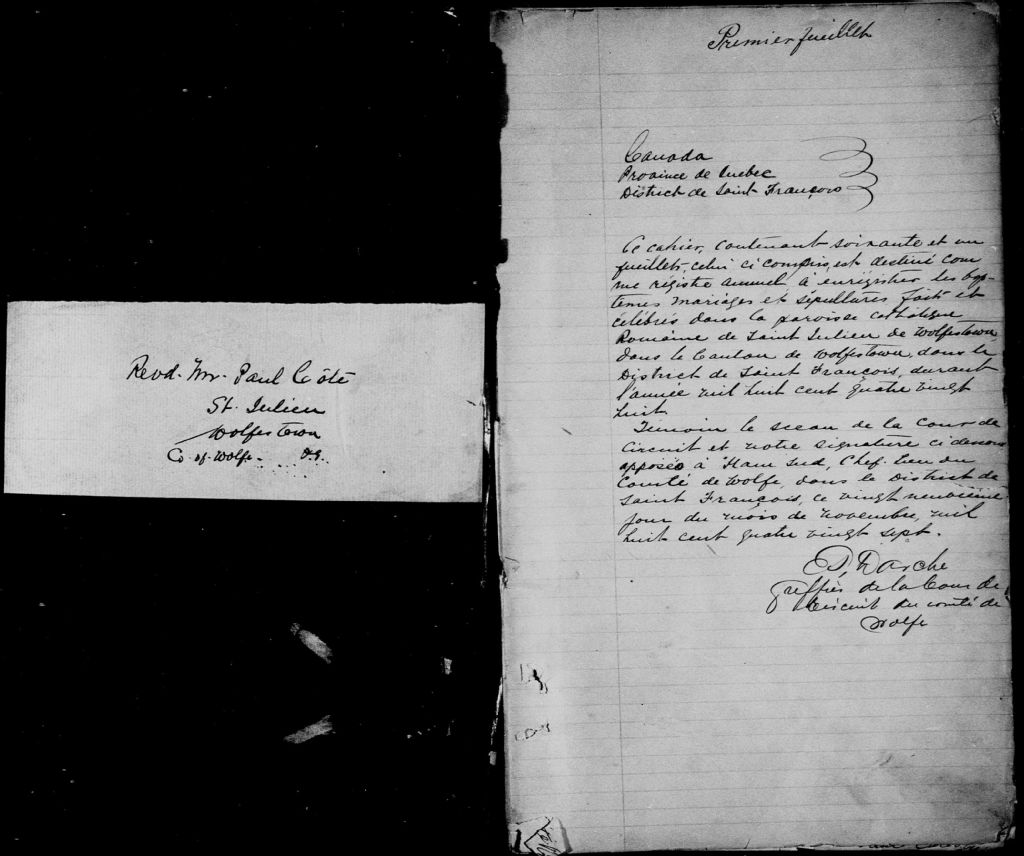 Revd. Mr. Paul Côté
St. Julien
Wolfestown
Co of Wolfe. P.Q.
Premier feuillet
Canada
Province de Quebec
District de Saint François
Ce cahier, contenant soixante et un
feuillets, celui ci compris, est destiné com
me régistre annuel à enrégistrer les bap-
temes mariages et sépultures faits et
célébrés dans la paroisse catholique
Romaine de Saint Julien de Wolfestown
dans le Canton de Wolfestown, dans le
District de Saint François, durant
l'année mil huit cent quatre vingt
huit
Temoin le sceau de la Cour de
Circuit et notre signature ci dessous
apposés à Ham Sud, Chef-lieu du
Comté de Wolfe, dans le District de
Saint François, ce vingt neuvième
jour du mois de Novembre, mil
huit cent quatre vingt sept.
Darche
Greffier de la Cour de
Circuit du comté de
Wolfe